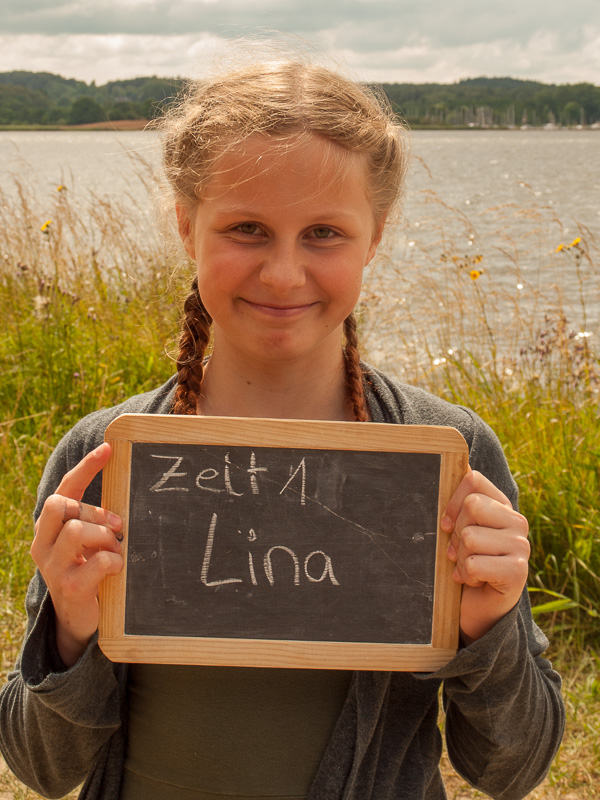 Zelt 1
Lina